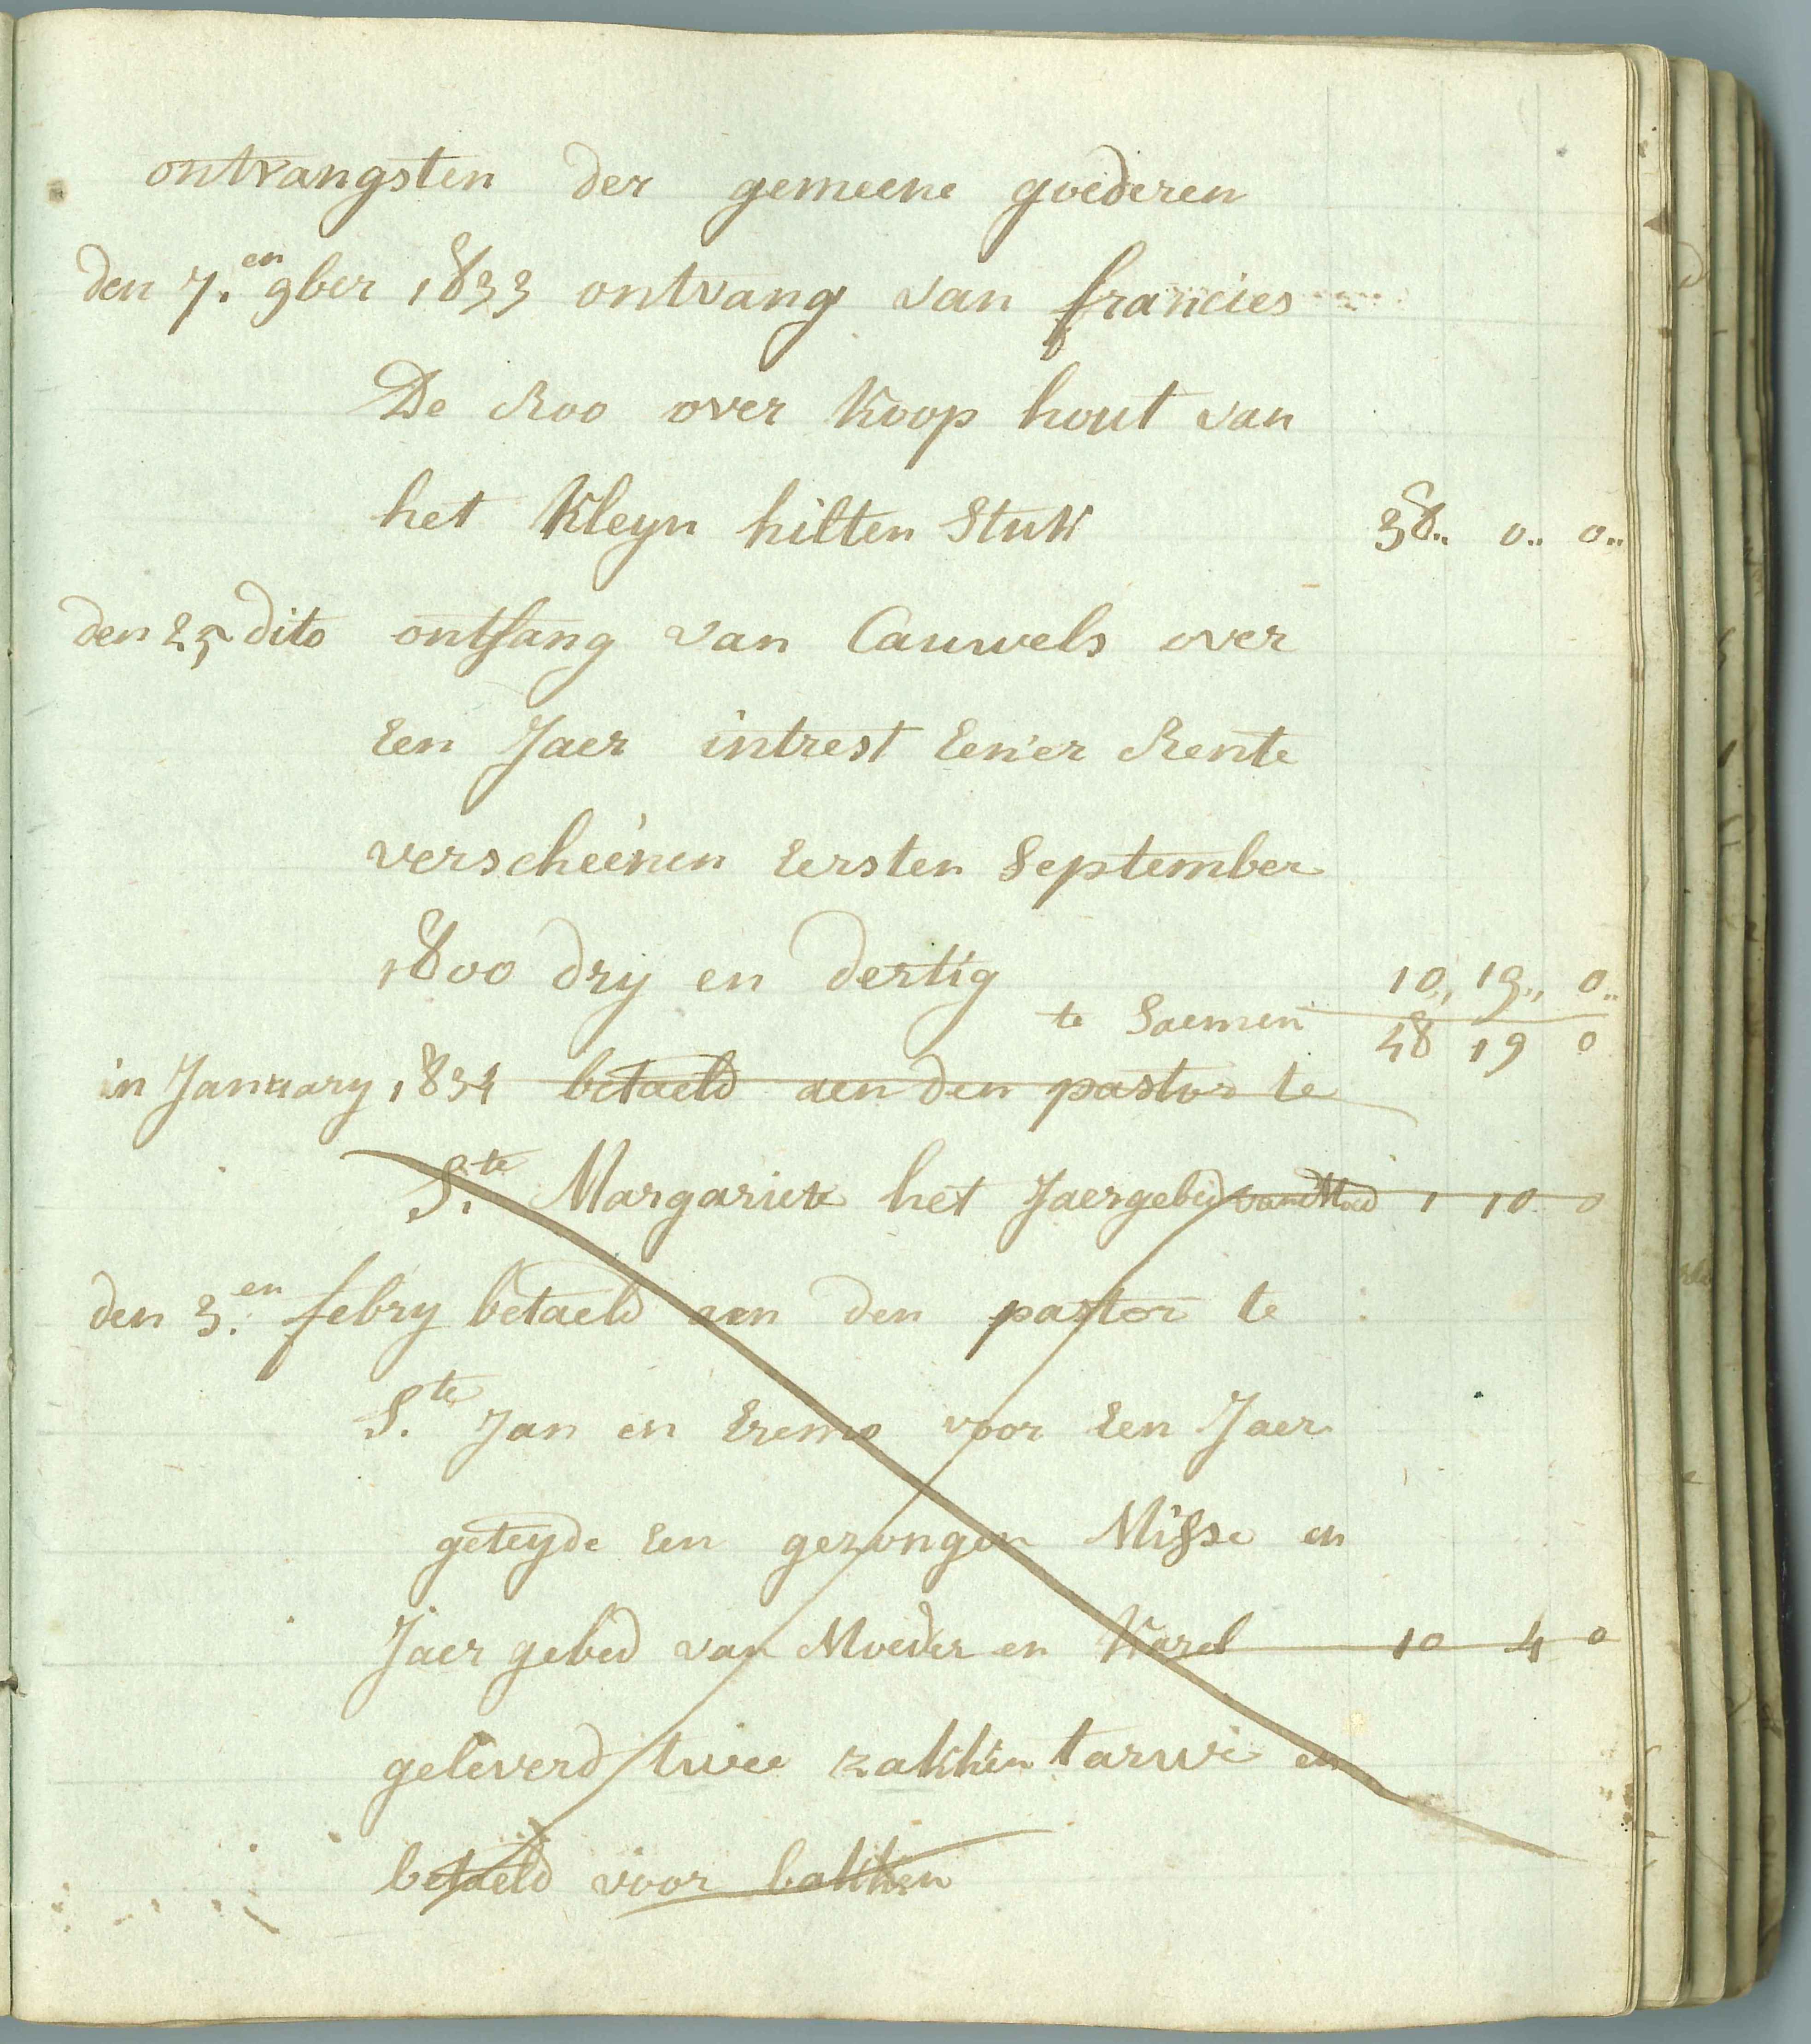 ontvangsten der gemeene goederen
den 7.en 9ber 1833 ontvang van francies
De Roo over koop hout van
het kleyn hilten stuk 38.. 0.. 0..
den 25 dito ontfang van Cauwels over
een Jaer intrest eener Rente
verscheenen eersten September
1800 dry en dertig 10,, 19,, 0..
te saemen 48 19 0
in January 1834 betaeld aen den pastor te
S.te Margariete het Jaergebed van 1 10 0
den 3.en febry betaeld aen den pastor te
S.te Jan en Eremo voor een Jaer
geteyde een gezongen Misse en
Jaer gebed van Moeder en Karel 10 4 0
geleverd twee zakken tarwe en
betaeld voor bakken